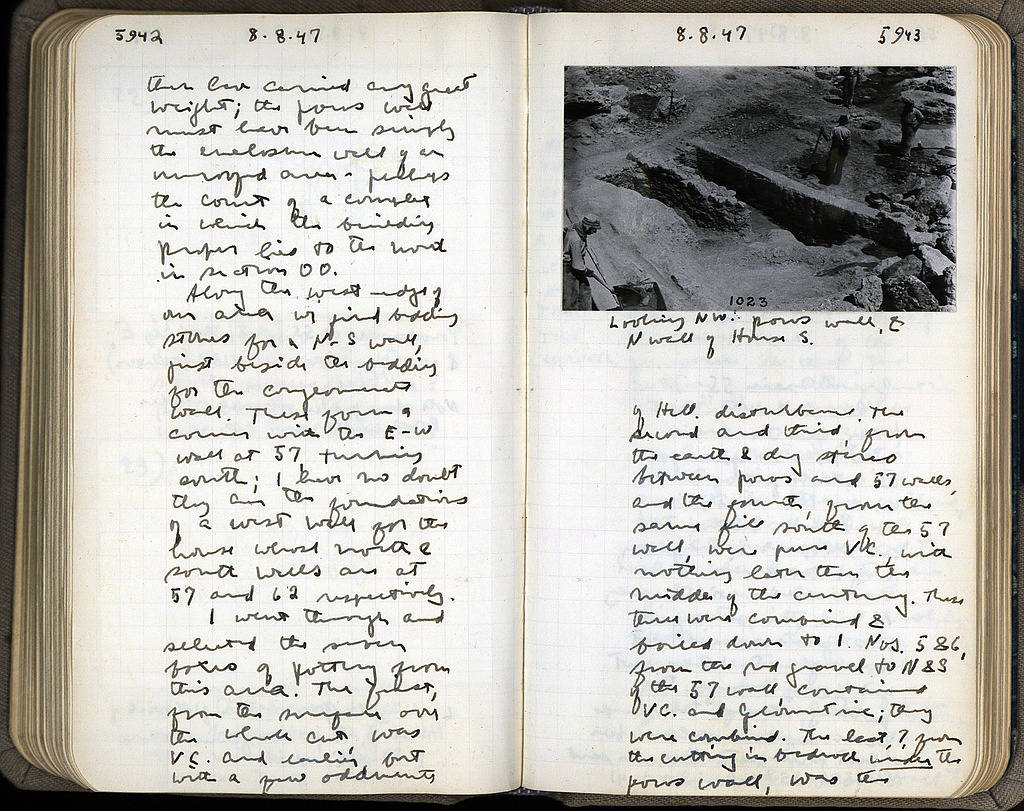 5942 8.8.47
then have carried any great
weight; the poros wall
must have been simply
the enclosure wall of an
unroofed area - perhaps
the court of a complex
in which the building
proper lies to the north
in section OO.
Along the west edge of
our area we find bedding
stones for a N-S wall,
just beside the bedding
for the conglomerate
wall. These form a
corner with the E-W
wall at 57, turning
south; I have no doubt
they are the foundations
of a west wall for the
house whose north &
south walls are at
57 and 62 respectively.
I went through and
selected the seven
boxes of pottery from
this area. The first,
from the surface over
the whole cut was
VC. and earlier, but
with a few oddments
8.8.47 5943
1023
Looking NW: poros wall, &
N wall of House S.
of Hell. disturbance. The
second and third, from
the earth & dug stereo
between poros and 57 walls,
and the fourth, from the
same fill south of the 57
wall, were pure VC., with
nothing later than the
middle of the century. These
three were combined &
boiled down to 1. Nos. 5 & 6,
from the red gravel to N & S
of the 57 wall contained
VC. and Geometric; they
were combined. The last, 7, from
the cutting in bedrock under the
poros wall, was the